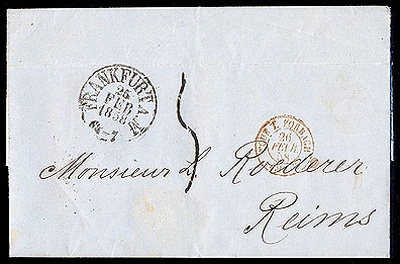 FRANKFURT A.M.
25
FEB
1858
6-7
TOUR-T. FORBACH
26
FEVR
5
Monsieur L. Roederer
Reims